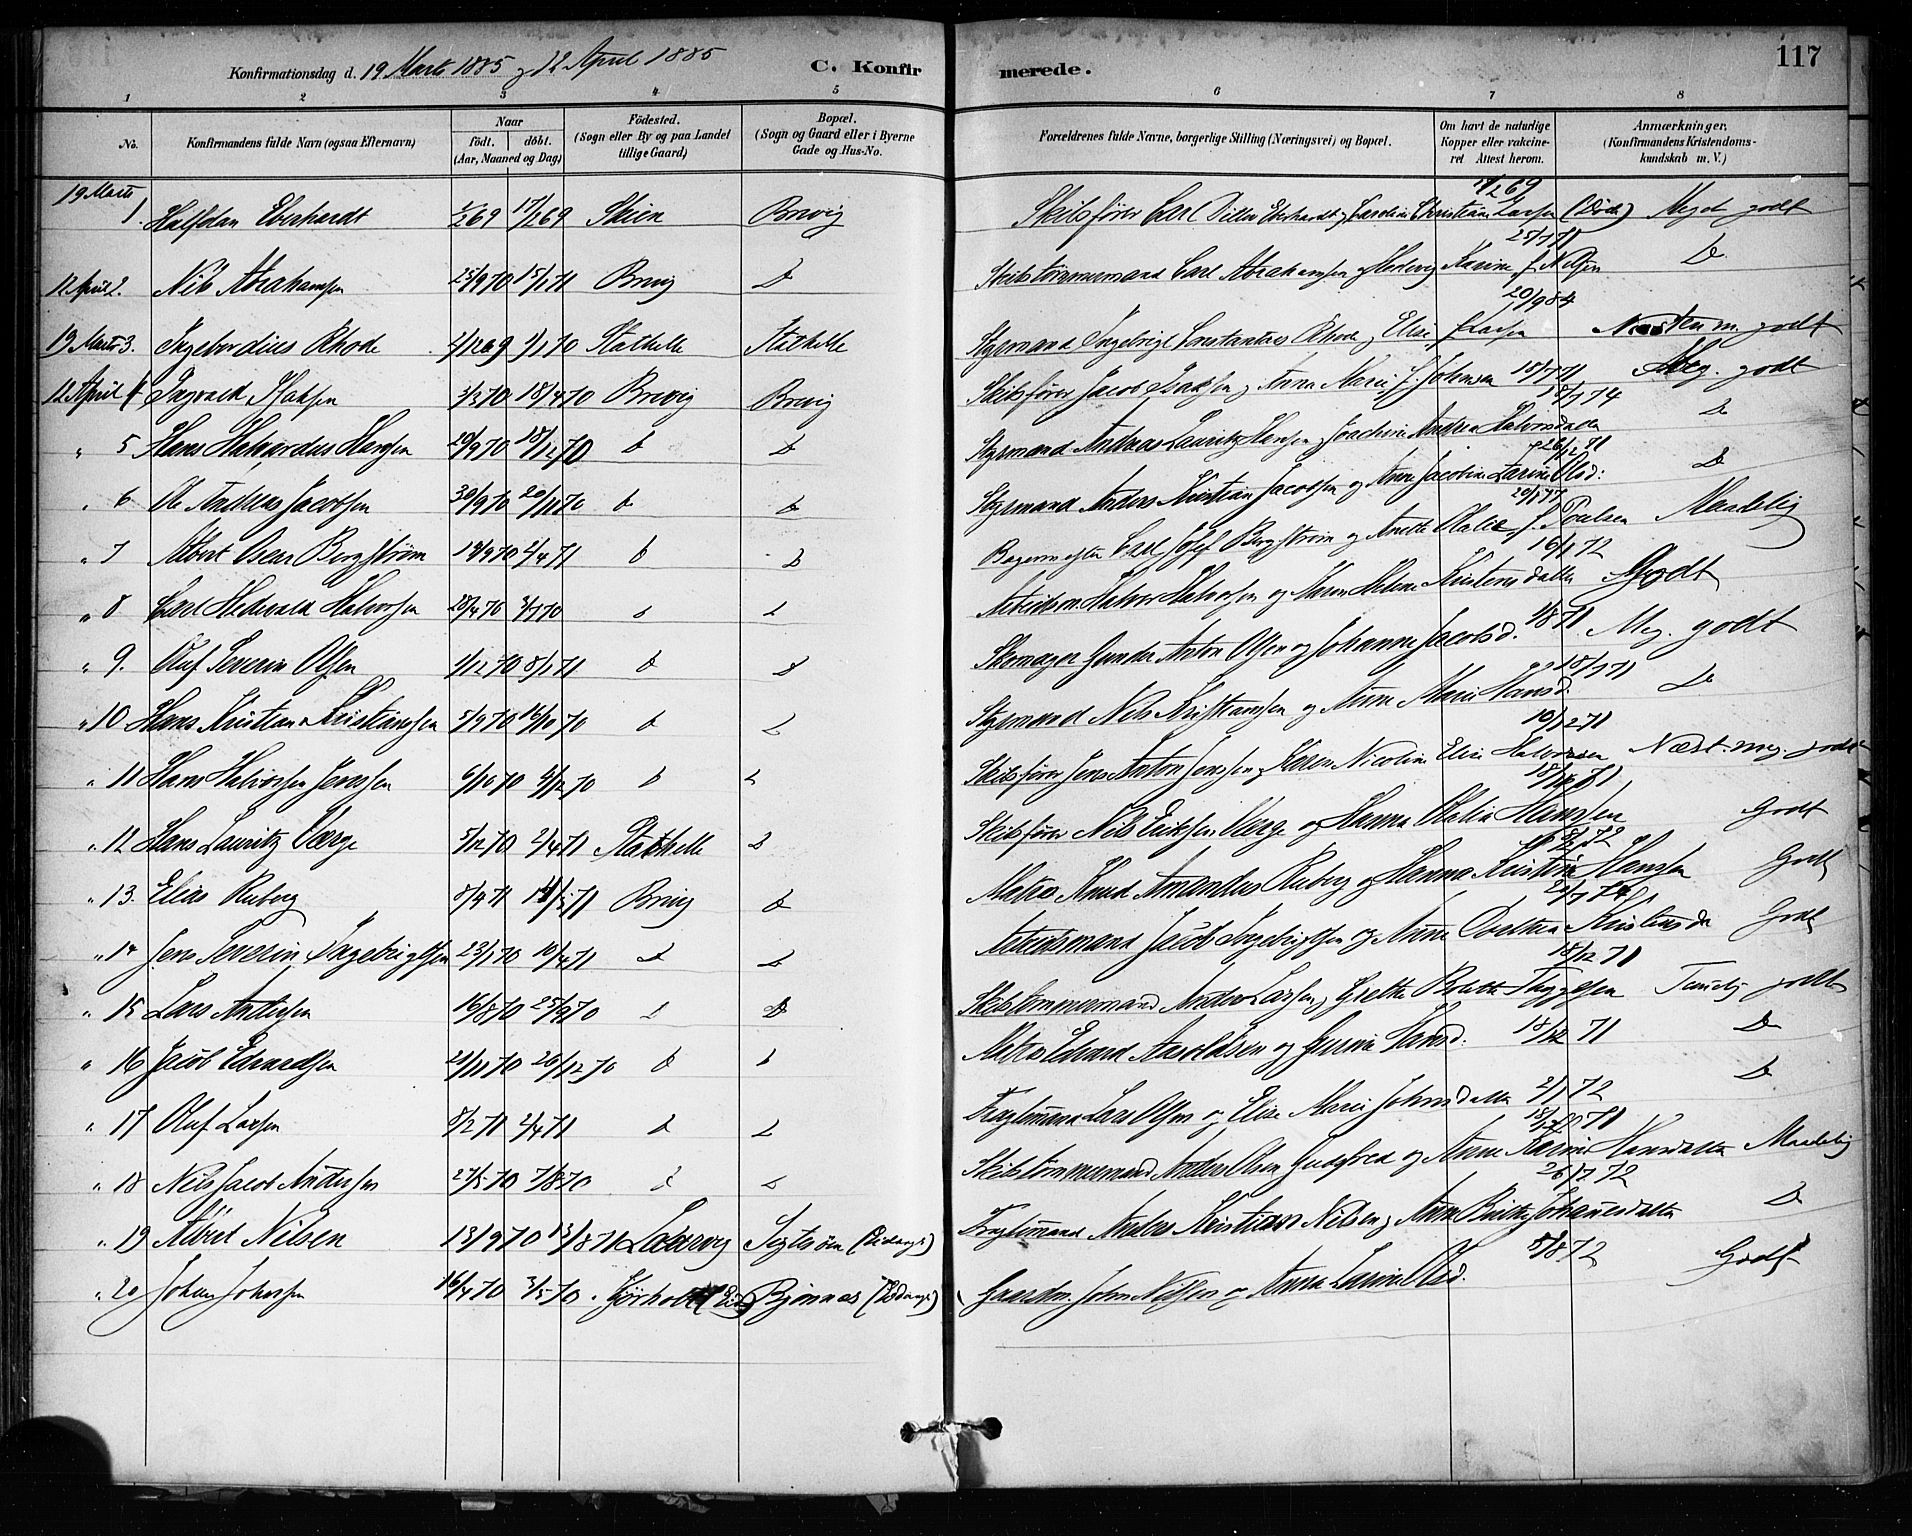 117
Konfirmationsdag d. 19 Marts 1885 og 12 April 1885 C. Konfirmerede.
1 2 3 4 5 6 7 8
No. Konfirmandens fulde Navn (ogsaa Efternavn) Naar födt. döbt. (Aar, Maaned og Dag) Födested. (Sogn eller By og paa Landet tillige Gaard) Bopæl. (Sogn og Gaard eller i Byerne Gade og Hus-No. Forældrenes fulde Navne, borgerlige Stilling (Næringsvei) og Bopæl. Om havt de naturlige Kopper eller vakcineret Attest herom. Anmærkninger. (Konfirmandens Kristendomskundskab m. V.)
19 Marts 1. Halfdan Eberhardt 69 17/2 69 Skien Brevig Skibsfører Carl Eberhardt og Caroline Christiane Larsen (Døde) 69 Meget godt
12 April 2. Nils Abrahamsen 25/9 70 15/1 71 Brevig D Skibstømmermand Carl Abrahamsen og Hedevig Karine f. Nilsen 25/1 71 D
19 Marts 3. Ingebordius Rhode 69 70 Stathelle Stathelle Styrmand Ingebrigt Constantius Rhode og Elise f. Larsen 20/9 84 Næsten m. godt
12 April 4 Ingvald Isaksen 70 18/4 70 Brevig Brevig Skibsfører Jacob Isaksen og Anna Marie f. Johnsen 18/7 71 Meg. godt
" 5 Hans Halvardus Hansen 29/9 70 18/12 70 D D Styrmand Andreas Lauritz Hansen og Joachine Andrea Halvorsdatter 74 D
" 6 Ole Andreas Jacobsen 30/9 70 20/11 70 D D Styrmand Anders Kristian Jacobsen og Anne Jacobine Larine Olsd: 26/2 71 D
" 7 Albert Oscar Bergstrøm 70 2/4 71 D D Bagermester Carl Josef Bergstrøm og Anette Olalie f. Poulsen 77 Maadelig
" 8 Carl Hedevald Halvorsen 28/4 70 3/7 70 D D Arbeidsm. Halvor Halvorsen og Maren Helene Kristensdatter 16/1 72 Godt
" 9. Oluf Severin Olsen 1/12 70 8/1 71 D D Skomager Gunder Anton Olsen og Johanne Jacobsd. 71 Meg. godt
" 10. Hans Kristian Kristiansen 5/9 70 16/10 70 D D Styrmand Nils Kristiansen og Anne Marie Hansd. 18/7 71 D
" 11 Hans Halvorsen Jensen 6/10 70 4/12 70 D D Skibsfører Jens Anton Jensen og Karen Nicoline Elise Halvorsen 10/12 71 Næst. meg. godt
" 12 Hans Lauritz Værge 5/12 70 2/4 71 Stathelle D Skibsfører Nils Eriksen Værge og Hanna Olalia Hansen 71 Godt
" 13. Elias Ruberg 71 71 Brevig D Matros Knud Amandus Ruberg og Hanna Kristine Hansen 72 Godt
" 14 Jens Severin Ingebrigtsen 23/1 70 10/4 71 D D Arbeidsmand Jacob Ingebrigtsen og Anne Dorthea Kristensd. Godt
" 15 Lars Andersen 16/8 70 25/9 70 D D Skibstømmermand Anders Larsen og Grethe Bolette 18/12 71 Temelig godt
" 16 Jacob Edvardsen 21/11 70 26/12 70 D D Matros Edvard Aaroldsen og Gurine Hansd. 18/12 71 D
" 17 Oluf Larsen 8/2 71 2/4 71 D D Fragtemand Lars Olsen og Elise Marie Johnsdatter 2/1 72 D
" 18 Nils Jacob Andersen 27/5 70 7/8 70 D D Skibstømmermand Anders Olsen Gudsfred og Anne Karine Hansdatter 71 Maadelig
" 19 Albert Nilsen 13/9 70 13/8 71 Laurvig (Eidanger) Fragtemand Anders Kristian Nilsen og Anne Birthe Johannesdatter 72 D
" 20 Johan Johnsen 16/4 70 3/5 70 Gjerholt (Eid) Bjønnes (Eidanger) Gaardm. John Nilsen og Anna Larine Olsd. 8/8 72 Godt